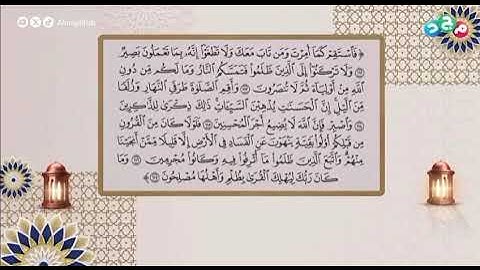 Almajd4kids
مجد
﴿ فَٱسۡتَقِمۡ كَمَآ أُمِرۡتَ وَمَن تَابَ مَعَكَ وَلَا تَطۡغَوۡاْۚ إِنَّهُۥ بِمَا تَعۡمَلُونَ بَصِيرٞ
١١٢ وَلَا تَرۡكَنُوٓاْ إِلَى ٱلَّذِينَ ظَلَمُواْ فَتَمَسَّكُمُ ٱلنَّارُ وَمَا لَكُم مِّن دُونِ
ٱللَّهِ مِنۡ أَوۡلِيَآءَ ثُمَّ لَا تُنصَرُونَ ١١٣ وَأَقِمِ ٱلصَّلَوٰةَ طَرَفَيِ ٱلنَّهَارِ وَزُلَفٗا
مِّنَ ٱلَّيۡلِۚ إِنَّ ٱلۡحَسَنَٰتِ يُذۡهِبۡنَ ٱلسَّيِّـَٔاتِۚ ذَٰلِكَ ذِكۡرَىٰ لِلذَّٰكِرِينَ
١١٤ وَٱصۡبِرۡ فَإِنَّ ٱللَّهَ لَا يُضِيعُ أَجۡرَ ٱلۡمُحۡسِنِينَ ١١٥ فَلَوۡلَا كَانَ مِنَ ٱلۡقُرُونِ
مِن قَبۡلِكُمۡ أُوْلُواْ بَقِيَّةٖ يَنۡهَوۡنَ عَنِ ٱلۡفَسَادِ فِي ٱلۡأَرۡضِ إِلَّا قَلِيلٗا مِّمَّنۡ أَنجَيۡنَا
مِنۡهُمۡۗ وَٱتَّبَعَ ٱلَّذِينَ ظَلَمُواْ مَآ أُتۡرِفُواْ فِيهِ وَكَانُواْ مُجۡرِمِينَ ١١٦ وَمَا
كَانَ رَبُّكَ لِيُهۡلِكَ ٱلۡقُرَىٰ بِظُلۡمٖ وَأَهۡلُهَا مُصۡلِحُونَ ١١٧ ﴾